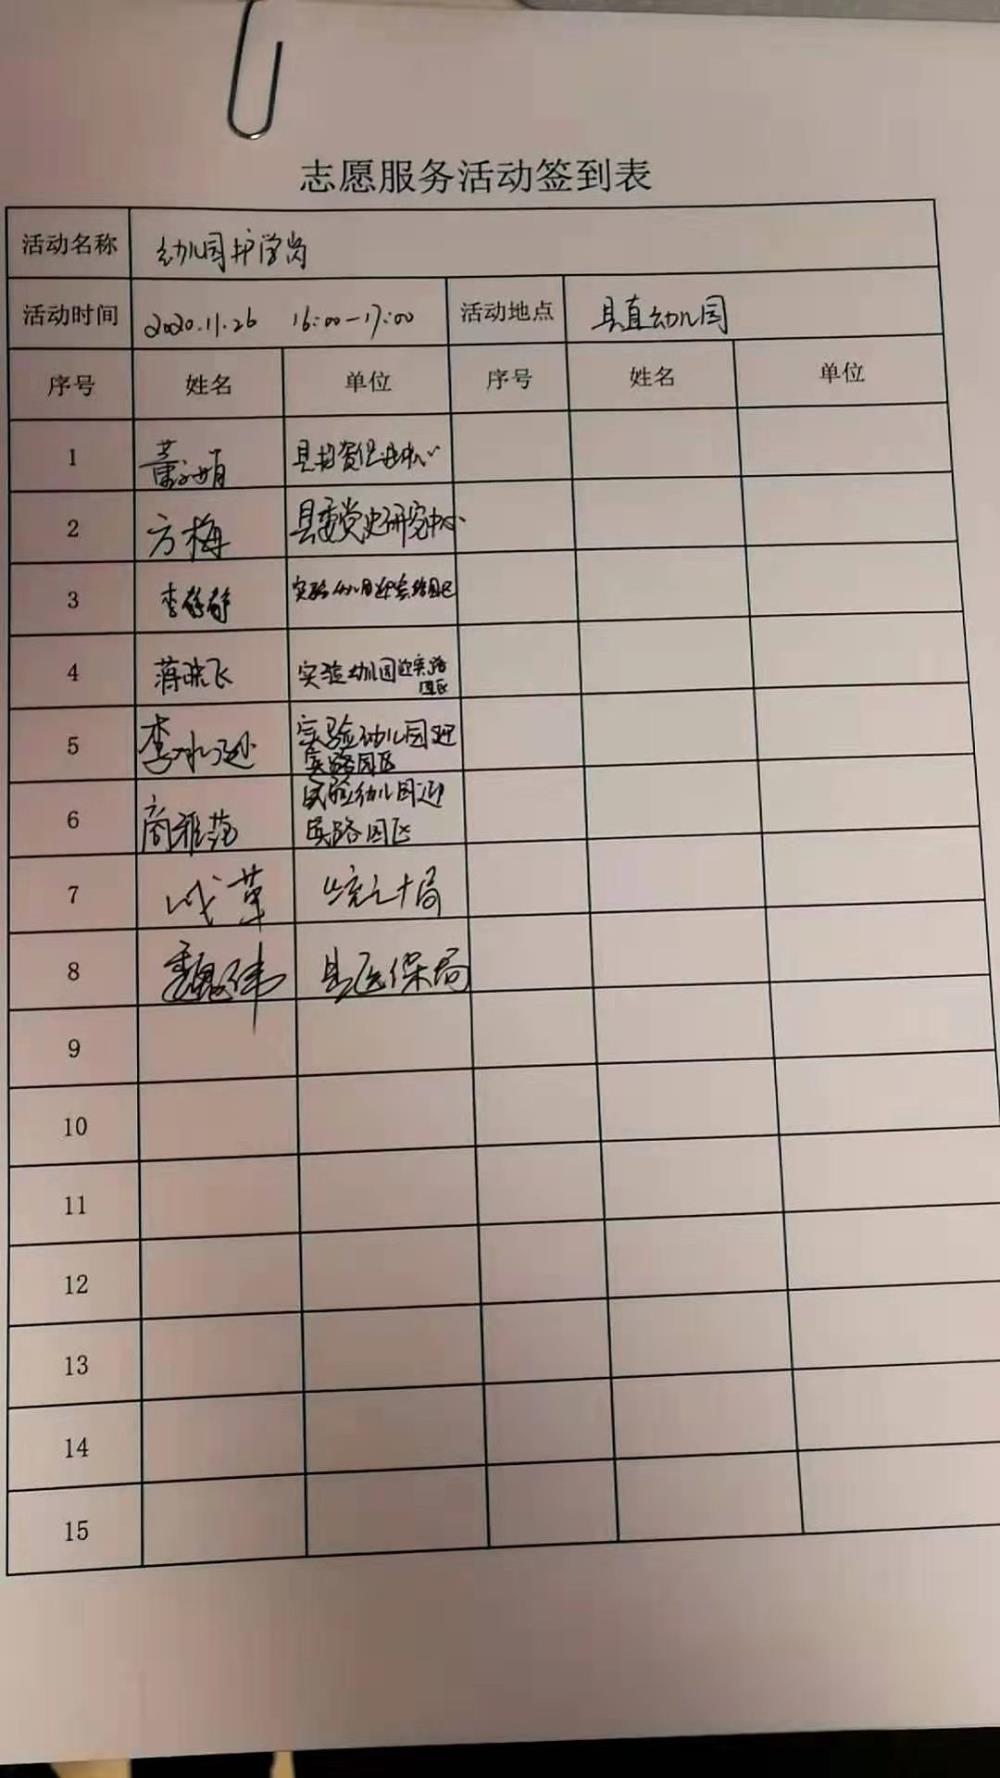 志愿服务活动签到表
活动名称 幼儿园护学岗
活动时间 2020.11.26 16:00-17:00 活动地点 县直幼儿园
序号 姓名 单位 序号 姓名 单位
1 董 县投资促进中心
2 方梅 县委党史研究中心
3 李静静 实验幼儿园迎宾路园区
4 蒋晓飞 实验幼儿园迎宾路
园区
5 李 实验幼儿园迎
宾路园区
6 商雅萍 实验幼儿园迎
宾路园区
7 统计局
8 魏伟 县医保局
9
10
11
12
13
14
15